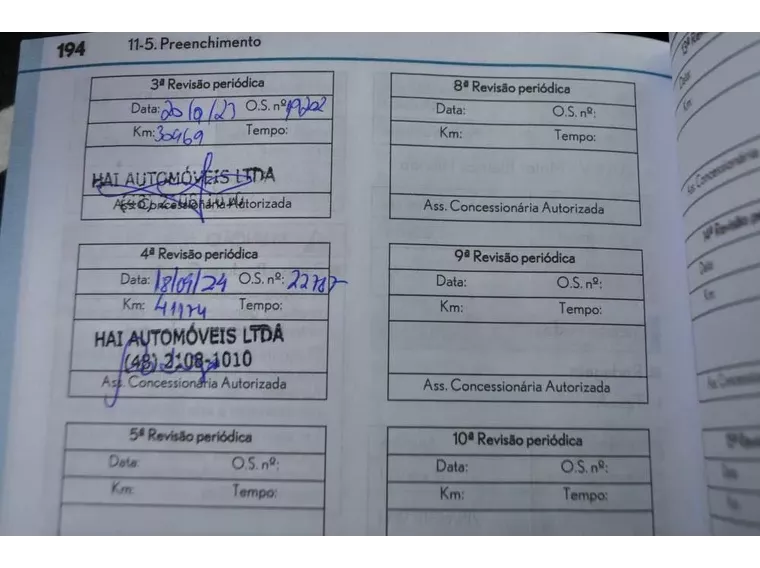 194 11-5. Preenchimento
3ª Revisão periódica
Data: O.S. nº: 19202
Km: 30969 Tempo:
HAI AUTOMÓVEIS LTDA
Ass. Concessionária Autorizada
4ª Revisão periódica
Data: 18/09/24 O.S. nº: 22787
Km: 41174 Tempo:
HAI AUTOMÓVEIS LTDA
(48) 2108-1010
Ass. Concessionária Autorizada
5ª Revisão periódica
Data: O.S. nº:
Km: Tempo:
8ª Revisão periódica
Data: O.S. nº:
Km: Tempo:
Ass. Concessionária Autorizada
9ª Revisão periódica
Data: O.S. nº:
Km: Tempo:
Ass. Concessionária Autorizada
10ª Revisão periódica
Data: O.S. nº:
Km: Tempo:
Data:
Km:
Ass. Concessionária